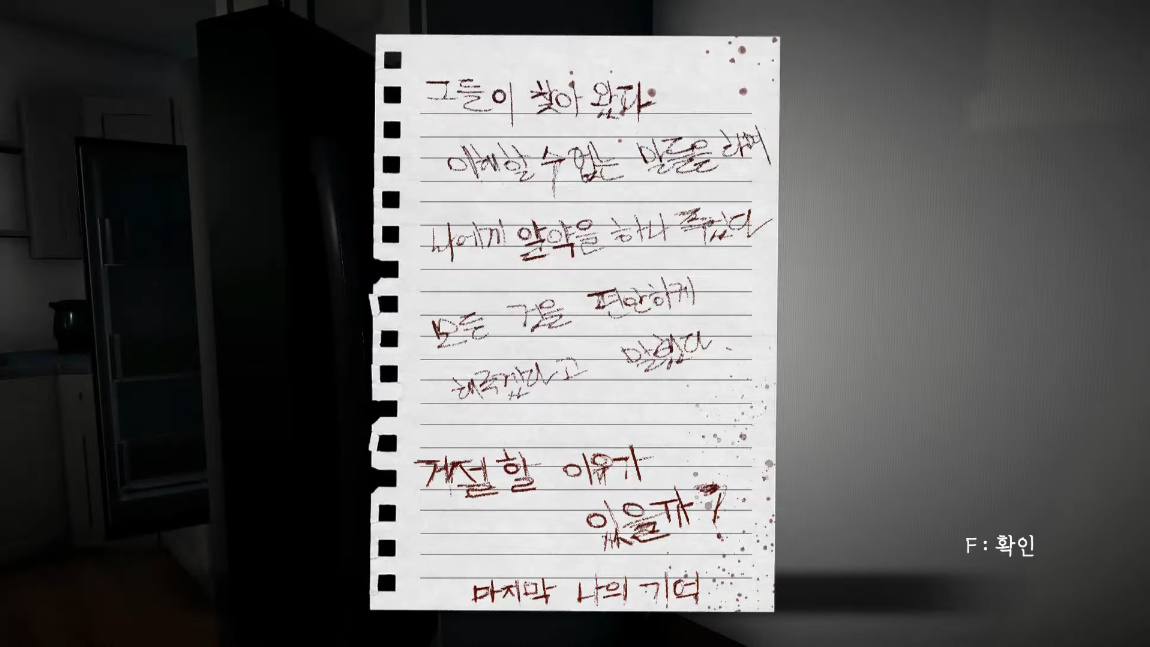 그들이 찾아 왔다
이해할 수 없는 말들을 하며
나에게 알약을 하나 주었다
모든 것을 편안하게
해줄거라고 말했다.
거절할 이유가
있을까?
마지막 나의 기억
F : 확인